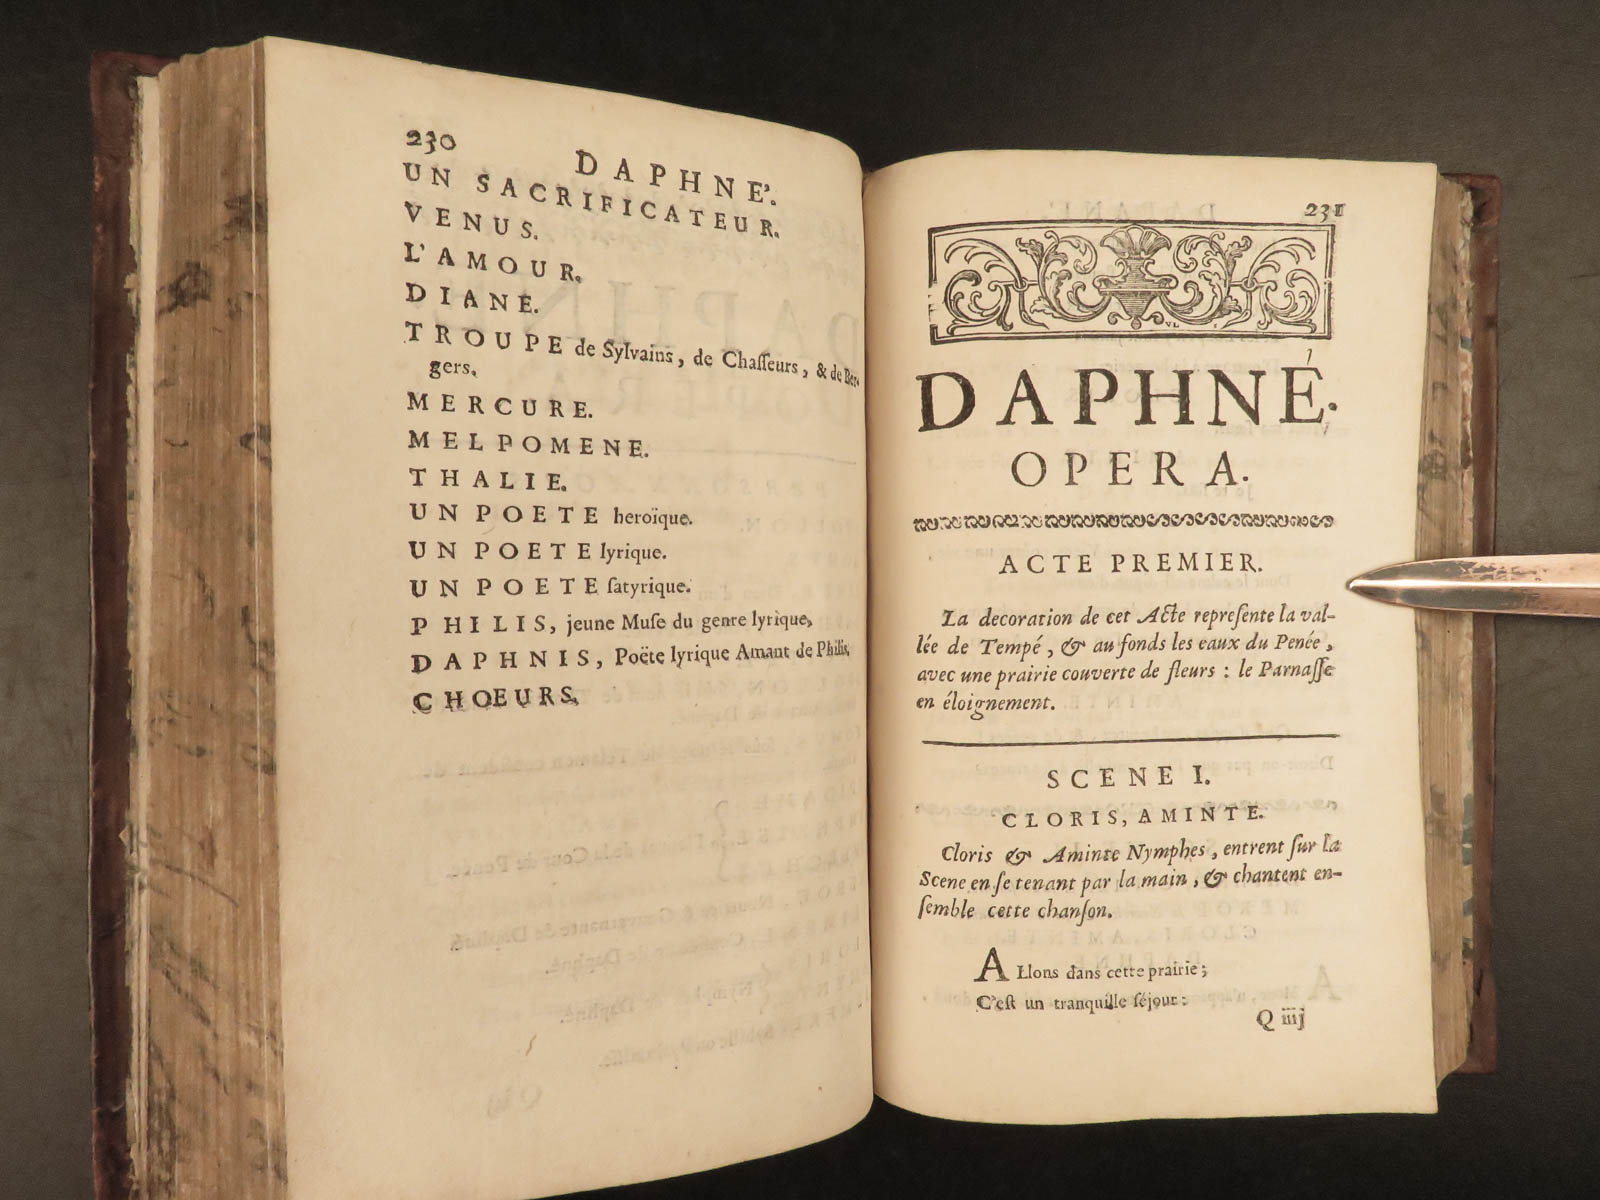 230
DAPHNE'.
UN SACRIFICATEUR.
VENUS.
L'AMOUR.
DIANE.
TROUPE de Sylvains, de Chaſſeurs, & de Ber-
gers.
MERCURE.
MELPOMENE.
THALIE.
UN POETE heroïque.
UN POETE lyrique.
UN POETE ſatyrique.
PHILIS, jeune Muſe du genre lyrique,
DAPHNIS, Poëte lyrique Amant de Philis,
CHOEURS.
231
DAPHNÉ.
OPERA.
ACTE PREMIER.
La decoration de cet Acte repreſente la val-
lée de Tempé, & au fonds les eaux du Penée,
avec une prairie couverte de fleurs : le Parnaſſe
en éloignement.
SCENE I.
CLORIS, AMINTE.
Cloris & Aminte Nymphes, entrent ſur la
Scene en ſe tenant par la main, & chantent en-
ſemble cette chanſon.
ALlons dans cette prairie ;
C'eſt un tranquille ſéjour :
Q iiij